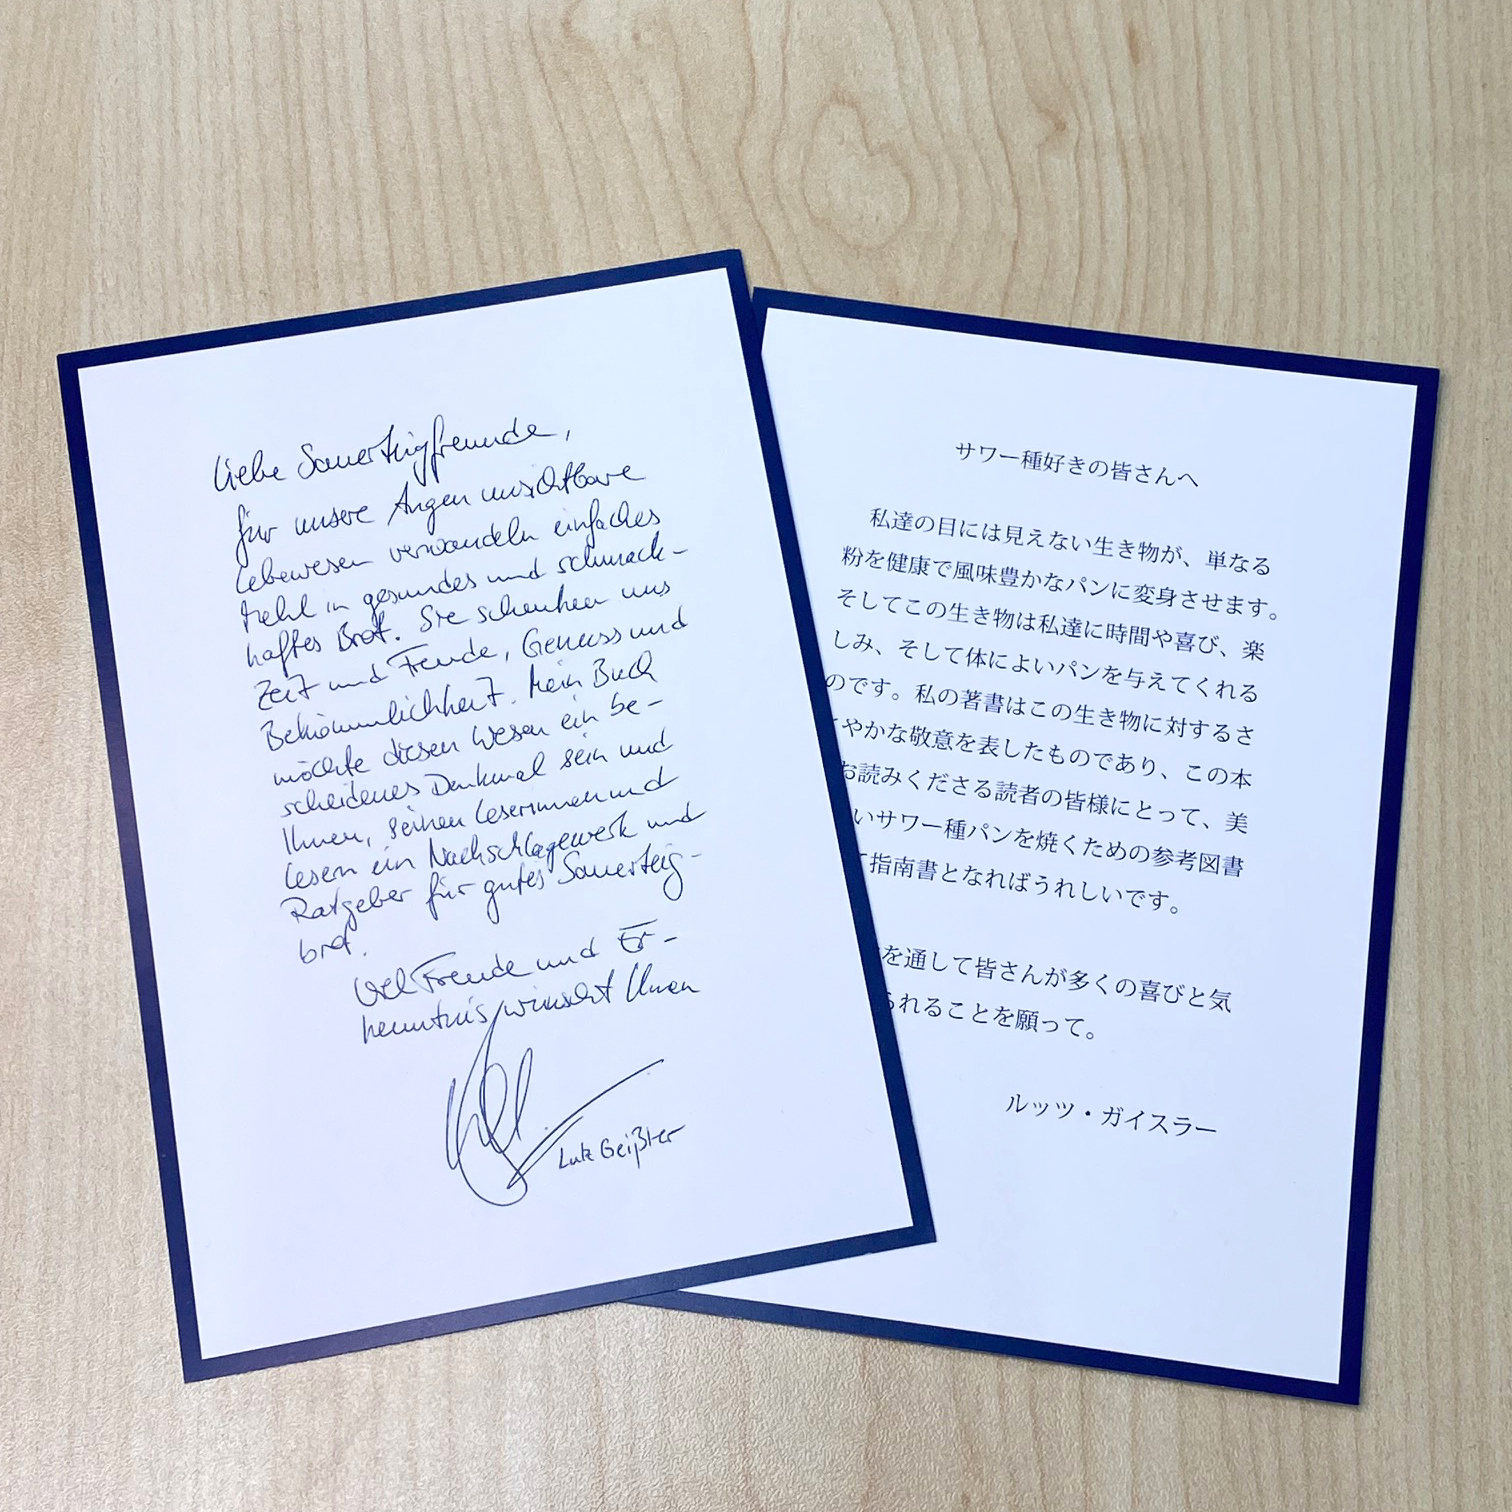 Liebe Sauerteigfreunde,
für unsere Augen unsichtbare
Lebewesen verwandeln einfaches
Mehl in gesundes und schmack-
haftes Brot. Sie schenken uns
Zeit und Freude, Genuss und
Bekömmlichkeit. Mein Buch
möchte diesen Wesen ein be-
scheidenes Denkmal sein und
Ihnen, seinen Leserinnen und
Lesern ein Nachschlagewerk und
Ratgeber für gutes Sauerteig-
brot.
Viel Freude und Er-
kenntnis wünscht Ihnen
Lutz Geißler
サワー種好きの皆さんへ
私達の目には見えない生き物が、単なる
粉を健康で風味豊かなパンに変身させます。
そしてこの生き物は私達に時間や喜び、楽
しみ、そして体によいパンを与えてくれる
のです。私の著書はこの生き物に対するさ
やかな敬意を表したものであり、この本
お読みくださる読者の皆様にとって、美
いサワー種パンを焼くための参考図書
指南書となればうれしいです。
を通して皆さんが多くの喜びと気
られることを願って。
ルッツ・ガイスラー